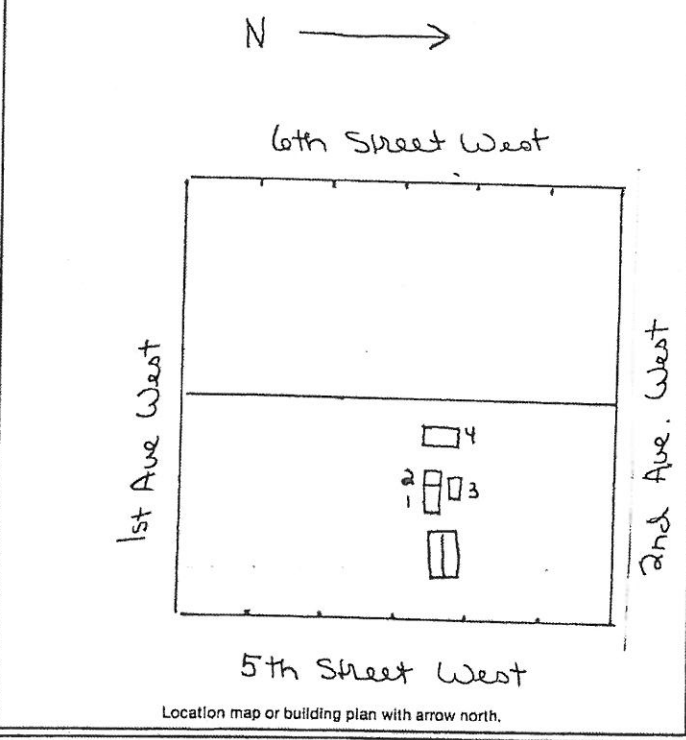 N
6th Street West
1st Ave West
2nd Ave. West
4
2
1
3
5th Street West
Location map or building plan with arrow north.